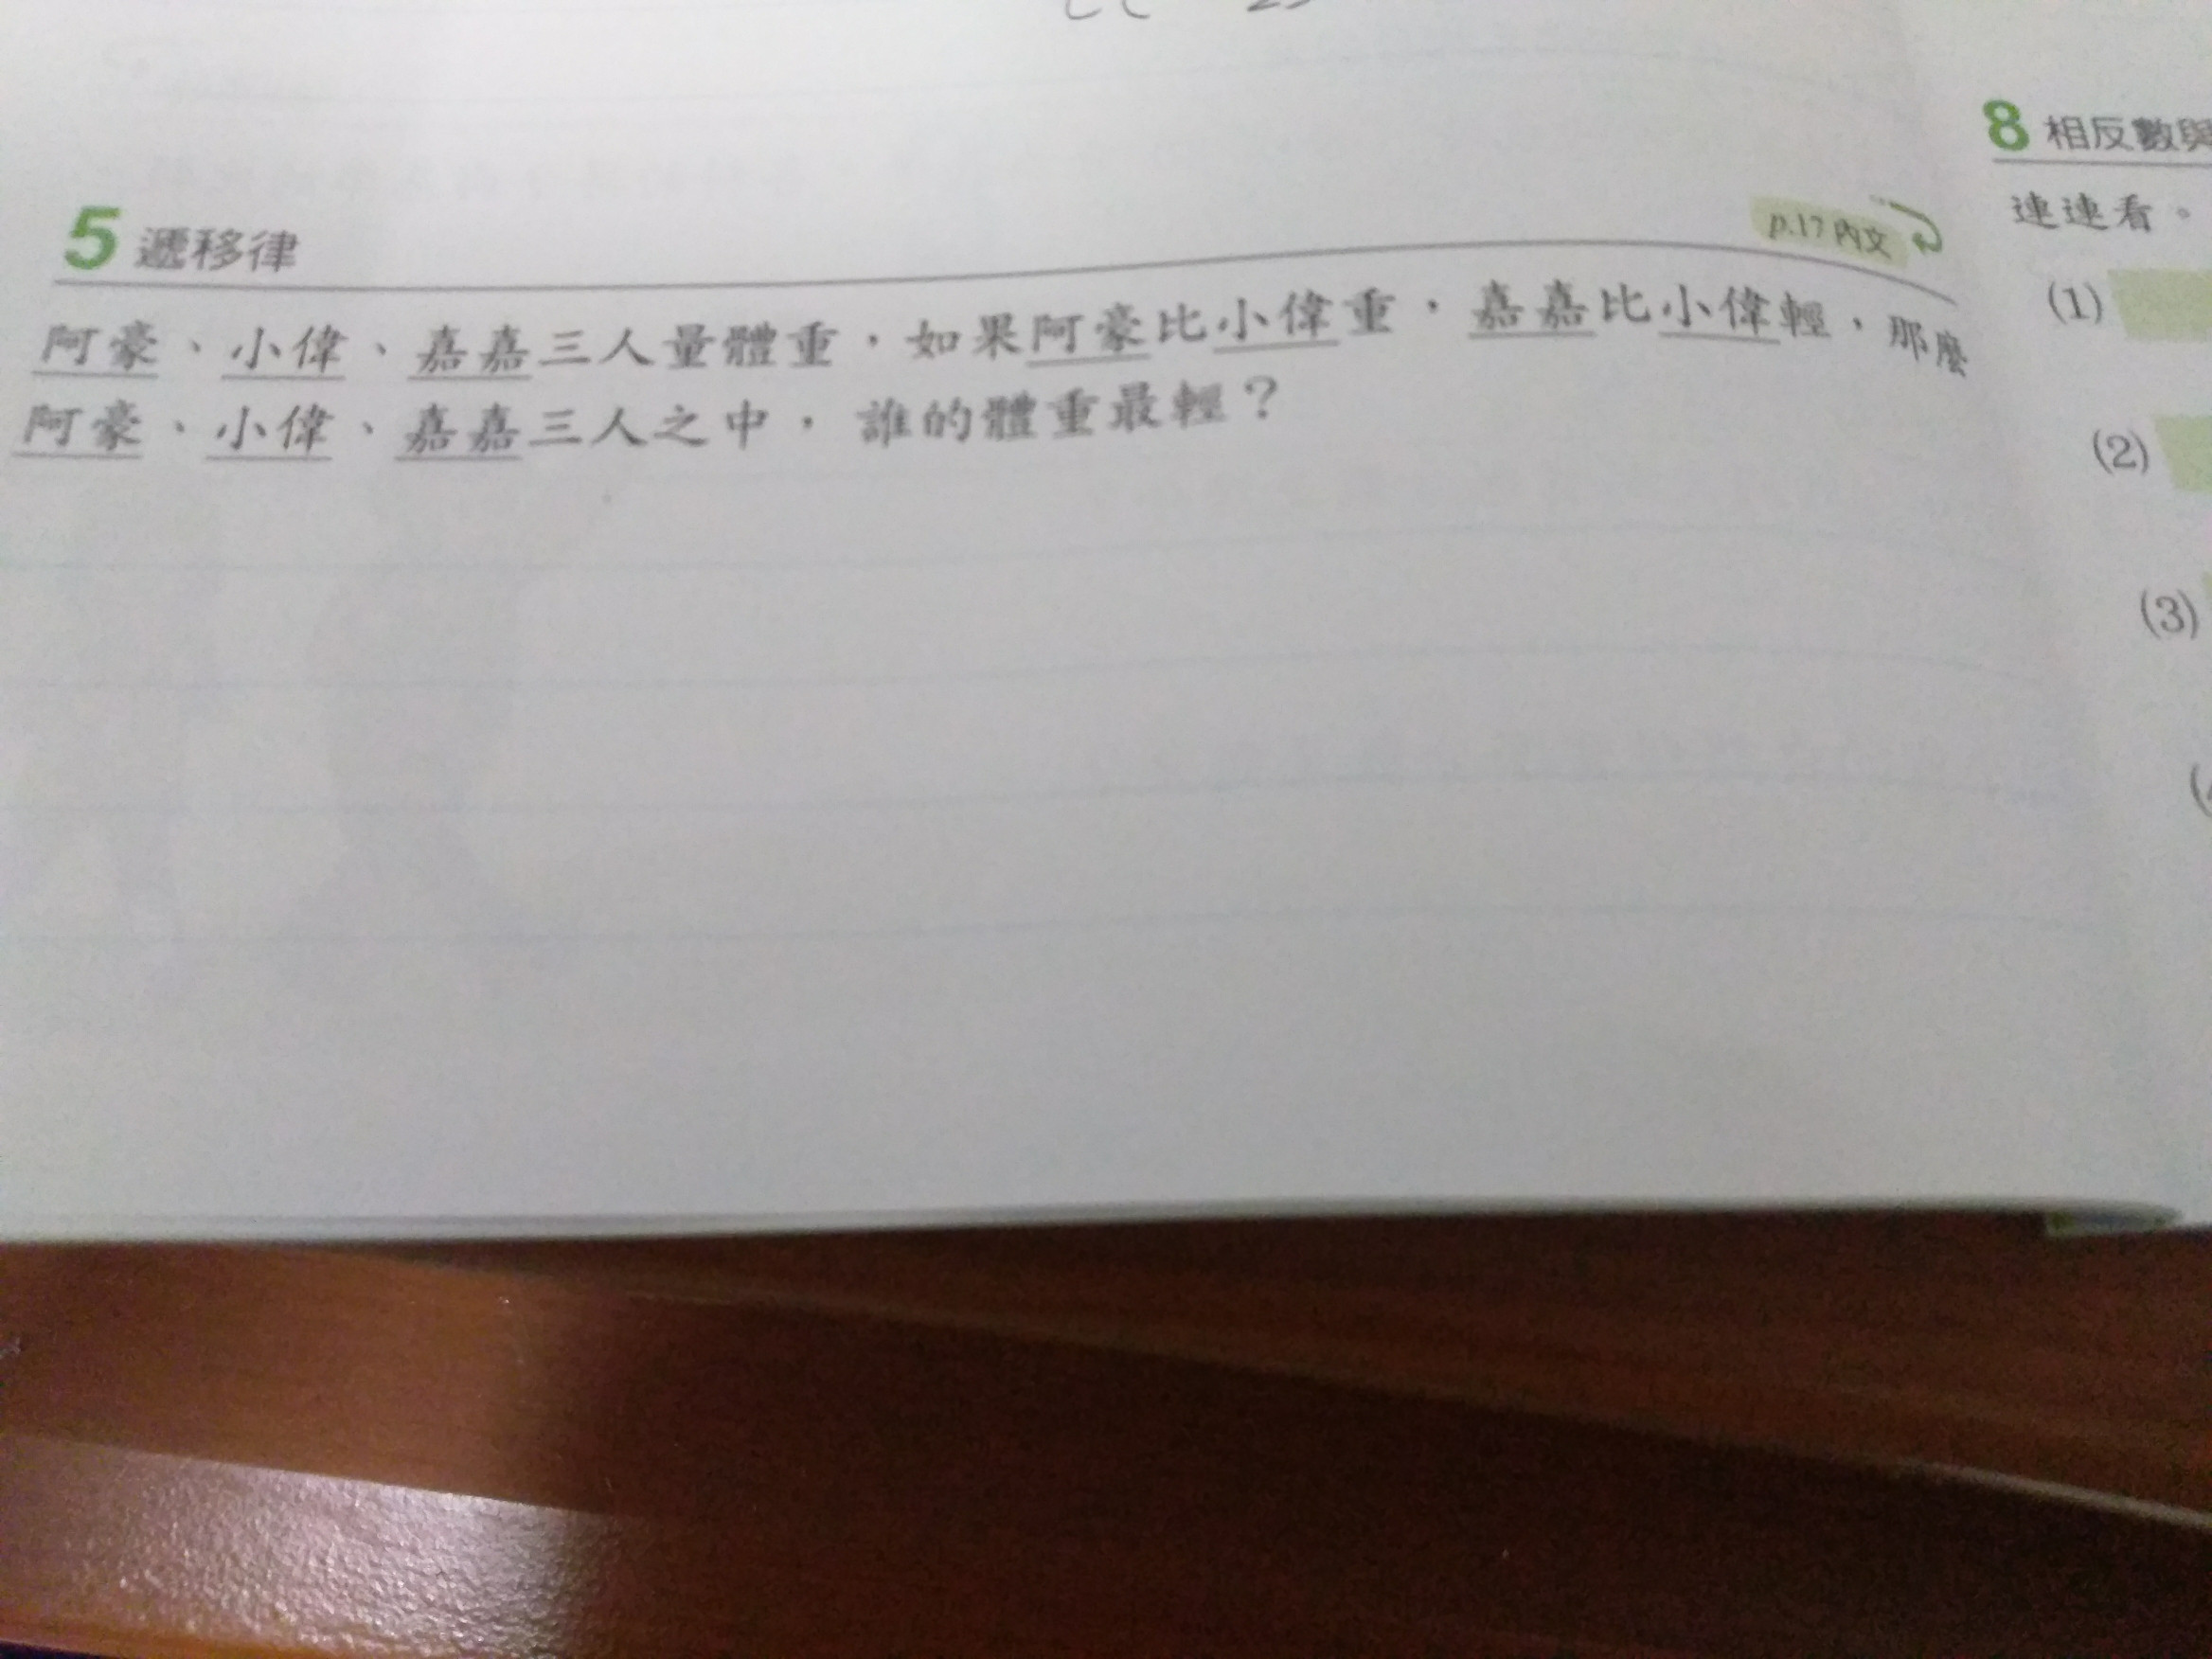 5 遞移律
p.17 內文
阿豪、小偉、嘉嘉三人量體重，如果阿豪比小偉重，嘉嘉比小偉輕，那麼
阿豪、小偉、嘉嘉三人之中，誰的體重最輕？
8 相反數與
連連看。
(1)
(2)
(3)